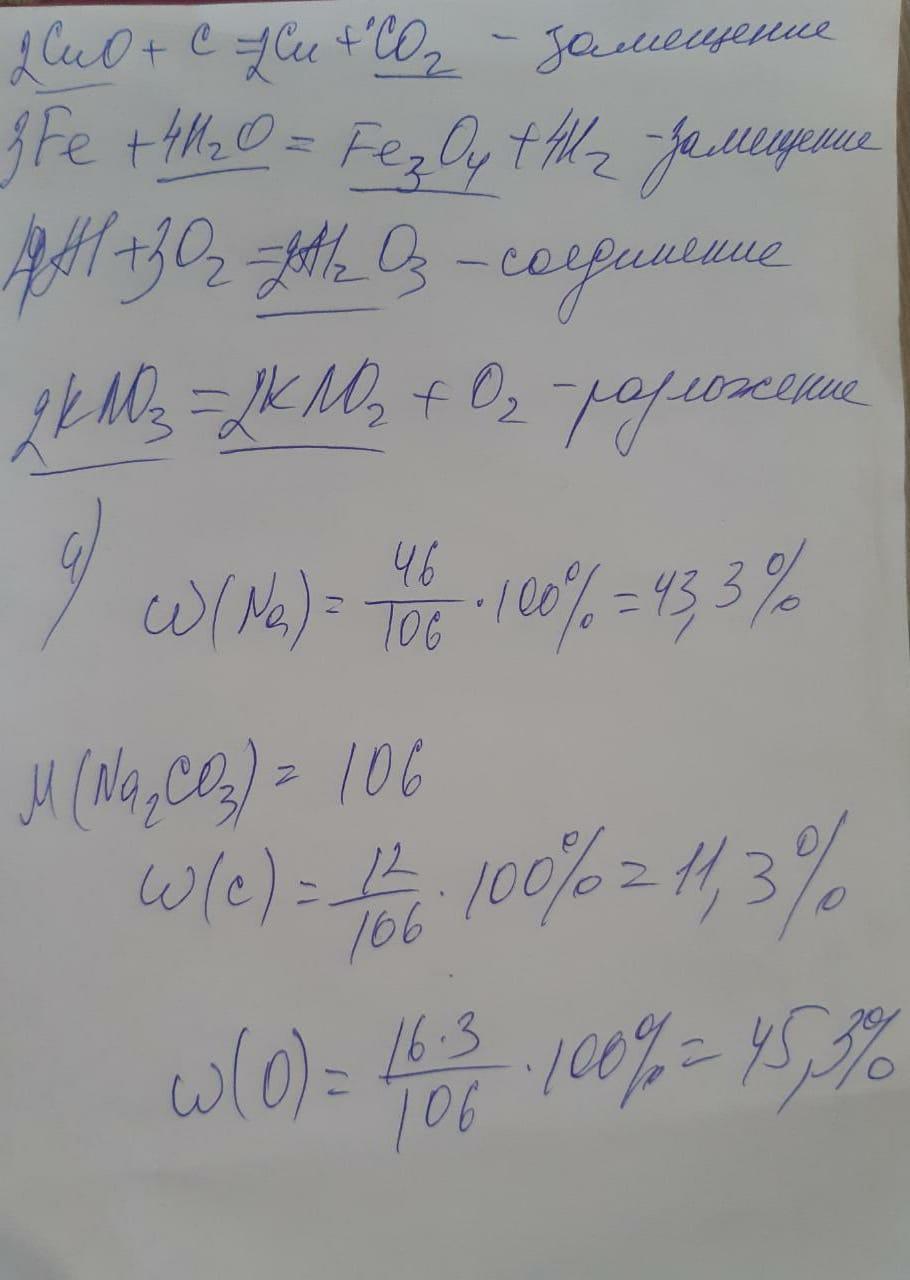 2CuO + C = 2Cu + CO₂ - замещение
3Fe + 4H₂O = Fe₃O₄ + 4H₂ - замещение
4Al + 3O₂ = 2Al₂O₃ - соединение
2KNO₃ = 2KNO₂ + O₂ - разложение
4) ω(Na) = 46/106 · 100% = 43,3%
M(Na₂CO₃) = 106
ω(C) = 12/106 · 100% = 11,3%
ω(O) = 16·3/106 · 100% = 45,3%